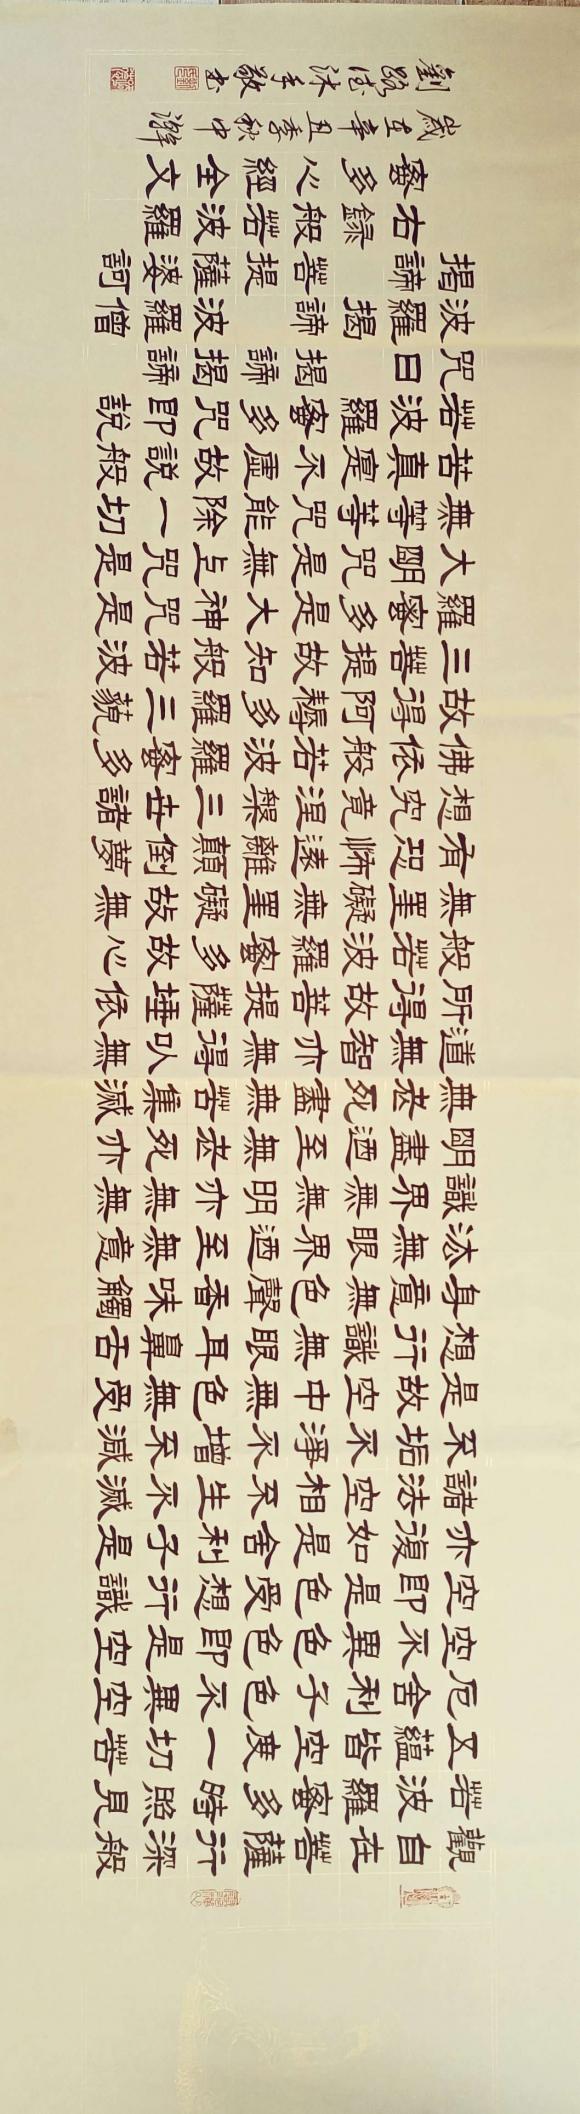 觀自在菩薩行深般
若波羅蜜多時照見
五蘊皆空度一切苦
厄舍利子色不異空
空不異色色即是空
空即是色受想行識
亦復如是舍利子是
諸法空相不生不滅
不垢不淨不增不減
是故空中無色無受
想行識無眼耳鼻舌
身意無色聲香味觸
法無眼界迺至無意
識界無無明亦無無
明盡迺至無老死亦
無老死盡無苦集滅
道無智亦無得以無
所得故菩提薩埵依
般若波羅蜜多故心
無罣礙無罣礙故無
有恐怖遠離顛倒夢
想究竟涅槃三世諸
佛依般若波羅蜜多
故得阿耨多羅三藐
三菩提故知般若波
羅蜜多是大神咒是
大明咒是無上咒是
無等等咒能除一切
苦真寔不虛故説般
若波羅蜜多咒即說
咒曰 揭諦揭諦
波羅揭諦波羅僧
揭諦菩提薩婆訶
右錄般若波羅
蜜多心經全文
歲在辛丑季秋中澣
劉 沐手敬書